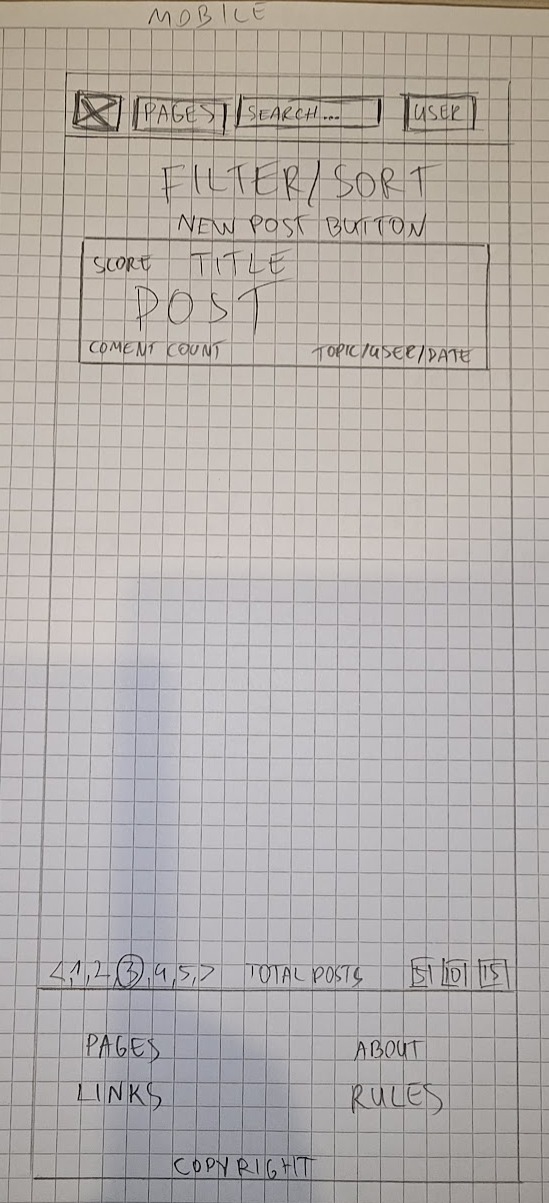 MOBILE
PAGES SEARCH... USER
FILTER/SORT
NEW POST BUTTON
SCORE TITLE
POST
COMENT COUNT TOPIC/USER/DATE
<,1,2,3,4,5,> TOTAL POSTS 5 10 15
PAGES ABOUT
LINKS RULES
COPYRIGHT